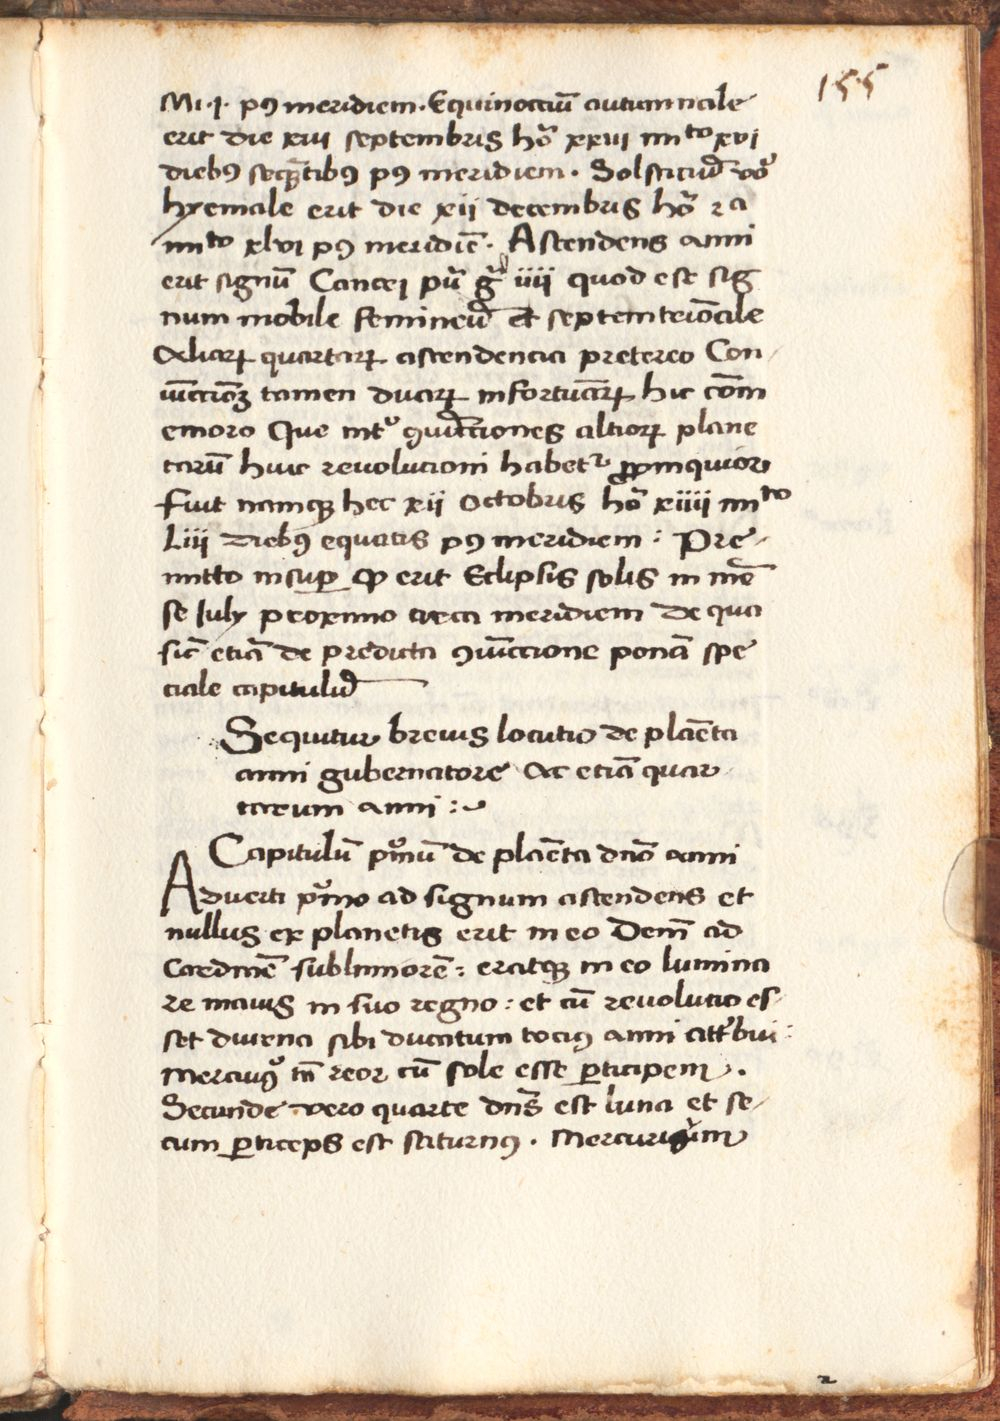 155
Mi·j· p9 meridiem· Equinocciū autumnale
erit die xiii septembris hō xxvi miᵗᵒ xvi
dieb9 seq̄tib9 p9 meridiem· Solsticiū vō
hyemale erit die xii decembris hō
miᵗᵒ xlvi p9 meridiē· Ascendens anni
erit signū Cancri gͣ iiii quod est sig
num mobile femineū et septemtrōale
Aliaꝝ quartaꝝ ascendencia pretereo Con
tamen duaꝝ infortunaꝝ hic cōm
emoro Que intͬ altioꝝ plane
tarū huic revolucioni habetͬ ꝓpinquior
fuit namqꝫ hec xii octobris hō xiiii miᵗᵒ
Liii dieb9 equatis p9 meridiem : Pre
mitto insuꝑ ꝙ erit Eclipsis solis in mē
se July proximo circa meridiem de qua
sic̄ etiā de predicta 9iūccione ponā spe
ciale capitulū
Sequitur brevis locutio de planēta
anni gubernatore Ac etiā quar
tarum anni :~
Capitulū pͥmū de planēta dnō anni
Adverti pͥmo ad signum ascendens et
nullus ex planetis erit in eo Dem̄ ad
Cardinē sublimiorē : eratqꝫ in eo lumina
re maius in suo regno : et cū revolutio es
set diurna sibi ducatum toci9 anni attͥbui :
Mercuriū tn̄ reor cū sole esse ꝑticipem .
Secunde vero quarte dns̄ est luna et se
cum ꝑticeps est saturn9 . Mercuri